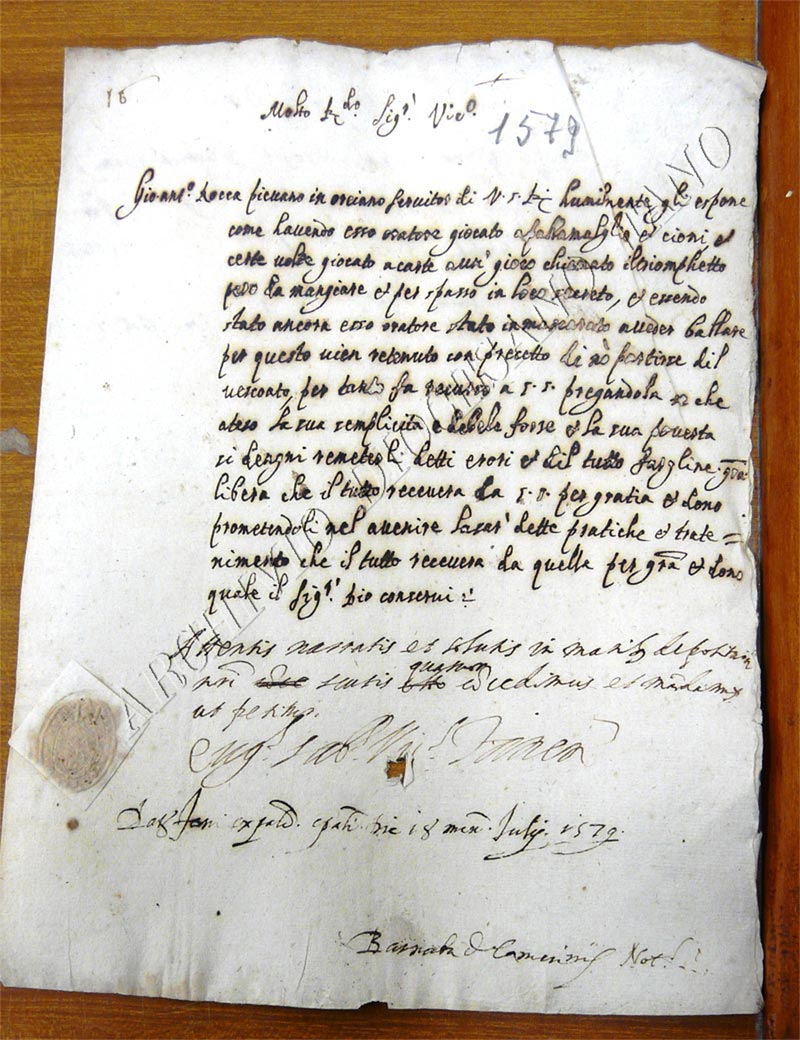 18
Molto R.do Sig.r Vic.o
1579
Gio:ant.o Rocca picuano in orciano servitor di V. S. R. humilmente gli espone
come havendo esso oratore giocato a pallamaglio et cioni et
certe volte giocato a carte a un gioco chiamato il triomphetto
pero da mangiare et per spasso in loco secreto, et essendo
stato ancora esso oratore stato inmascarato a veder ballare
per questo vien retenuto con precetto di nō partirse dil
vescoato, per tanto fa recurso a S. S. pregandola che
ateso la sua semplicità e debele forse et la sua poverta
si dengni remeterli detti erori et dil tutto fargline grā
libera che il tutto recevera da S. S. per gratia et dono
prometendoli nel avenire lasar dette pratiche et trate=
nimento che il tutto recevera da quella per grā et dono
quale il Sig.r Dio conservi
Attentis narratis et solutis in manib depositarii
nri scutis quatuor concedimus et mandamus
ut petitur.
Dat ex palat. epali die 18 men. Julij. 1579.
Barnaba de Not.
ARCHIVIO DIOCESANO